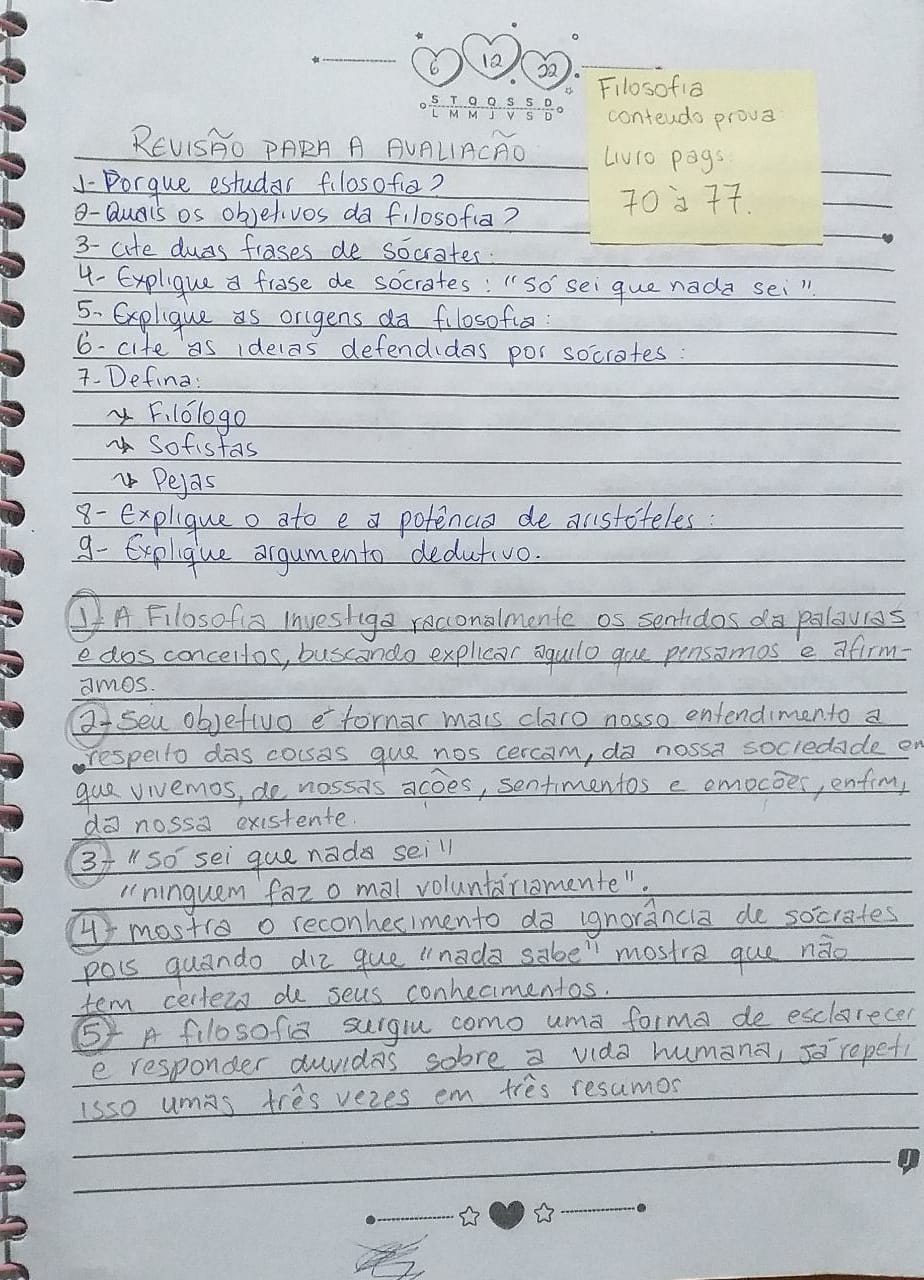 6 12 22
S T Q Q S S D
L M M J V S D
Filosofia
conteudo prova
Livro pags.
70 à 77.
REVISÃO PARA A AVALIACÃO
1- Porque estudar filosofia?
2- Quais os objetivos da filosofia?
3- cite duas frases de sócrates:
4- Explique a frase de sócrates: "só sei que nada sei".
5- Explique as origens da filosofia:
6- cite as ideias defendidas por sócrates:
7- Defina:
Filólogo
Sofistas
Pejas
8- Explique o ato e a potência de aristóteles:
9- Explique argumento dedutivo.
1- A Filosofia investiga racionalmente os sentidos da palavras
e dos conceitos, buscando explicar aquilo que pensamos e afirm-
amos.
2- Seu objetivo é tornar mais claro nosso entendimento a
respeito das coisas que nos cercam, da nossa sociedade em
que vivemos, de nossas acões, sentimentos e emocões, enfim,
da nossa existente.
3- "só sei que nada sei"
"ninguem faz o mal voluntáriamente".
4- mostra o reconhecimento da ignorância de sócrates
pois quando diz que "nada sabe" mostra que não
tem certeza de seus conhecimentos.
5- A filosofia surgiu como uma forma de esclarecer
e responder duvidas sobre a vida humana, já repeti
isso umas três vezes em três resumos